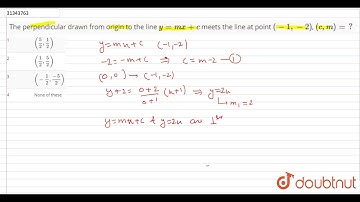 31343763
The perpendicular drawn from origin to the line y = mx + c meets the line at point (−1, −2), (c, m) = ?
1 (5/2, 1/2)
2 (1/2, 5/2)
3 (−1/2, −5/2)
4 None of these
y = mx + c (-1, -2)
-2 = -m + c ⇒ c = m-2 — ①
(0, 0) → (-1, -2)
y + 2 = 0+2/0+1 (x+1) ⇒ y = 2x
↳ m₁ = 2
y = mx + c & y = 2x are ⊥
doubtnut